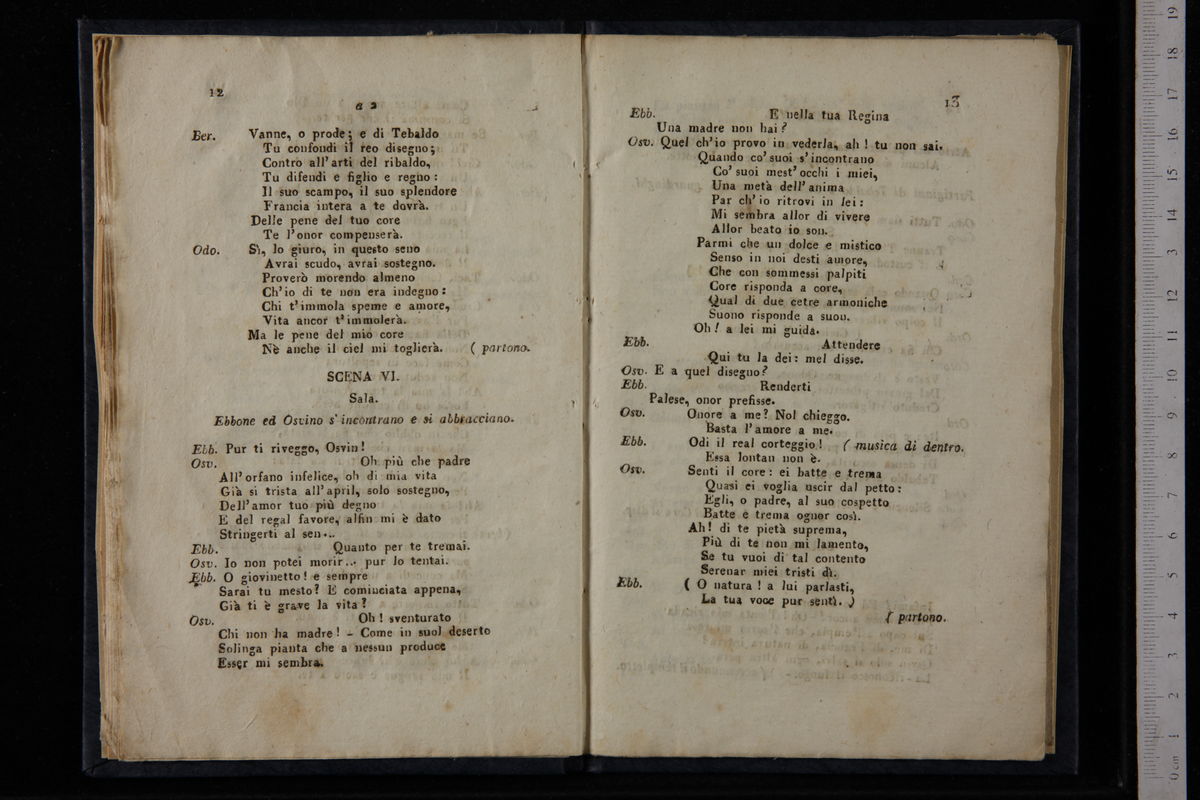 12
a 2
Ber. Vanne, o prode; e di Tebaldo
Tu confondi il reo disegno;
Contro all'arti del ribaldo,
Tu difendi e figlio e regno:
Il suo scampo, il suo splendore
Francia intera a te dovrà.
Delle pene del tuo core
Te l'onor compenserà.
Odo. Sì, lo giuro, in questo seno
Avrai scudo, avrai sostegno.
Proverò morendo almeno
Ch'io di te non era indegno:
Chi t'immola speme e amore,
Vita ancor t'immolerà.
Ma le pene del mio core
Nè anche il ciel mi toglierà. ( partono.
SCENA VI.
Sala.
Ebbone ed Osvino s'incontrano e si abbracciano.
Ebb. Pur ti riveggo, Osvin!
Osv. Oh più che padre
All'orfano infelice, oh di mia vita
Già si trista all'april, solo sostegno,
Dell'amor tuo più degno
E del regal favore, alfin mi è dato
Stringerti al sen...
Ebb. Quanto per te tremai.
Osv. Io non potei morir... pur lo tentai.
Ebb. O giovinetto! e sempre
Sarai tu mesto? E cominciata appena,
Già ti è grave la vita?
Osv. Oh! sventurato
Chi non ha madre! - Come in suol deserto
Solinga pianta che a nessun produce
Esser mi sembra.
13
Ebb. E nella tua Regina
Una madre non hai?
Osv. Quel ch'io provo in vederla, ah! tu non sai.
Quando co' suoi s'incontrano
Co' suoi mest'occhi i miei,
Una metà dell'anima
Par ch'io ritrovi in lei:
Mi sembra allor di vivere
Allor beato io son.
Parmi che un dolce e mistico
Senso in noi desti amore,
Che con sommessi palpiti
Core risponda a core,
Qual di due cetre armoniche
Suono risponde a suon.
Oh! a lei mi guida.
Ebb. Attendere
Qui tu la dei: mel disse.
Osv. E a quel disegno?
Ebb. Renderti
Palese, onor prefisse.
Osv. Onore a me? Nol chieggo.
Basta l'amore a me.
Ebb. Odi il real corteggio! ( musica di dentro.
Essa lontan non è.
Osv. Senti il core: ei batte e trema
Quasi ei voglia uscir dal petto:
Egli, o padre, al suo cospetto
Batte e trema ognor così.
Ah! di te pietà suprema,
Più di te non mi lamento,
Se tu vuoi di tal contento
Serenar miei tristi dì.
Ebb. ( O natura! a lui parlasti,
La tua voce pur sentì. )
( partono.